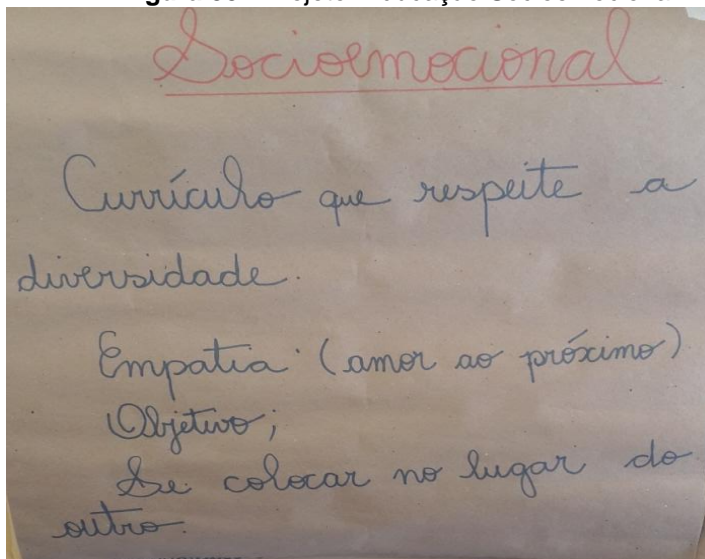 Socioemocional
Currículo que respeite a
diversidade.
Empatia: (amor ao próximo)
Objetivo;
Se colocar no lugar do
outro.